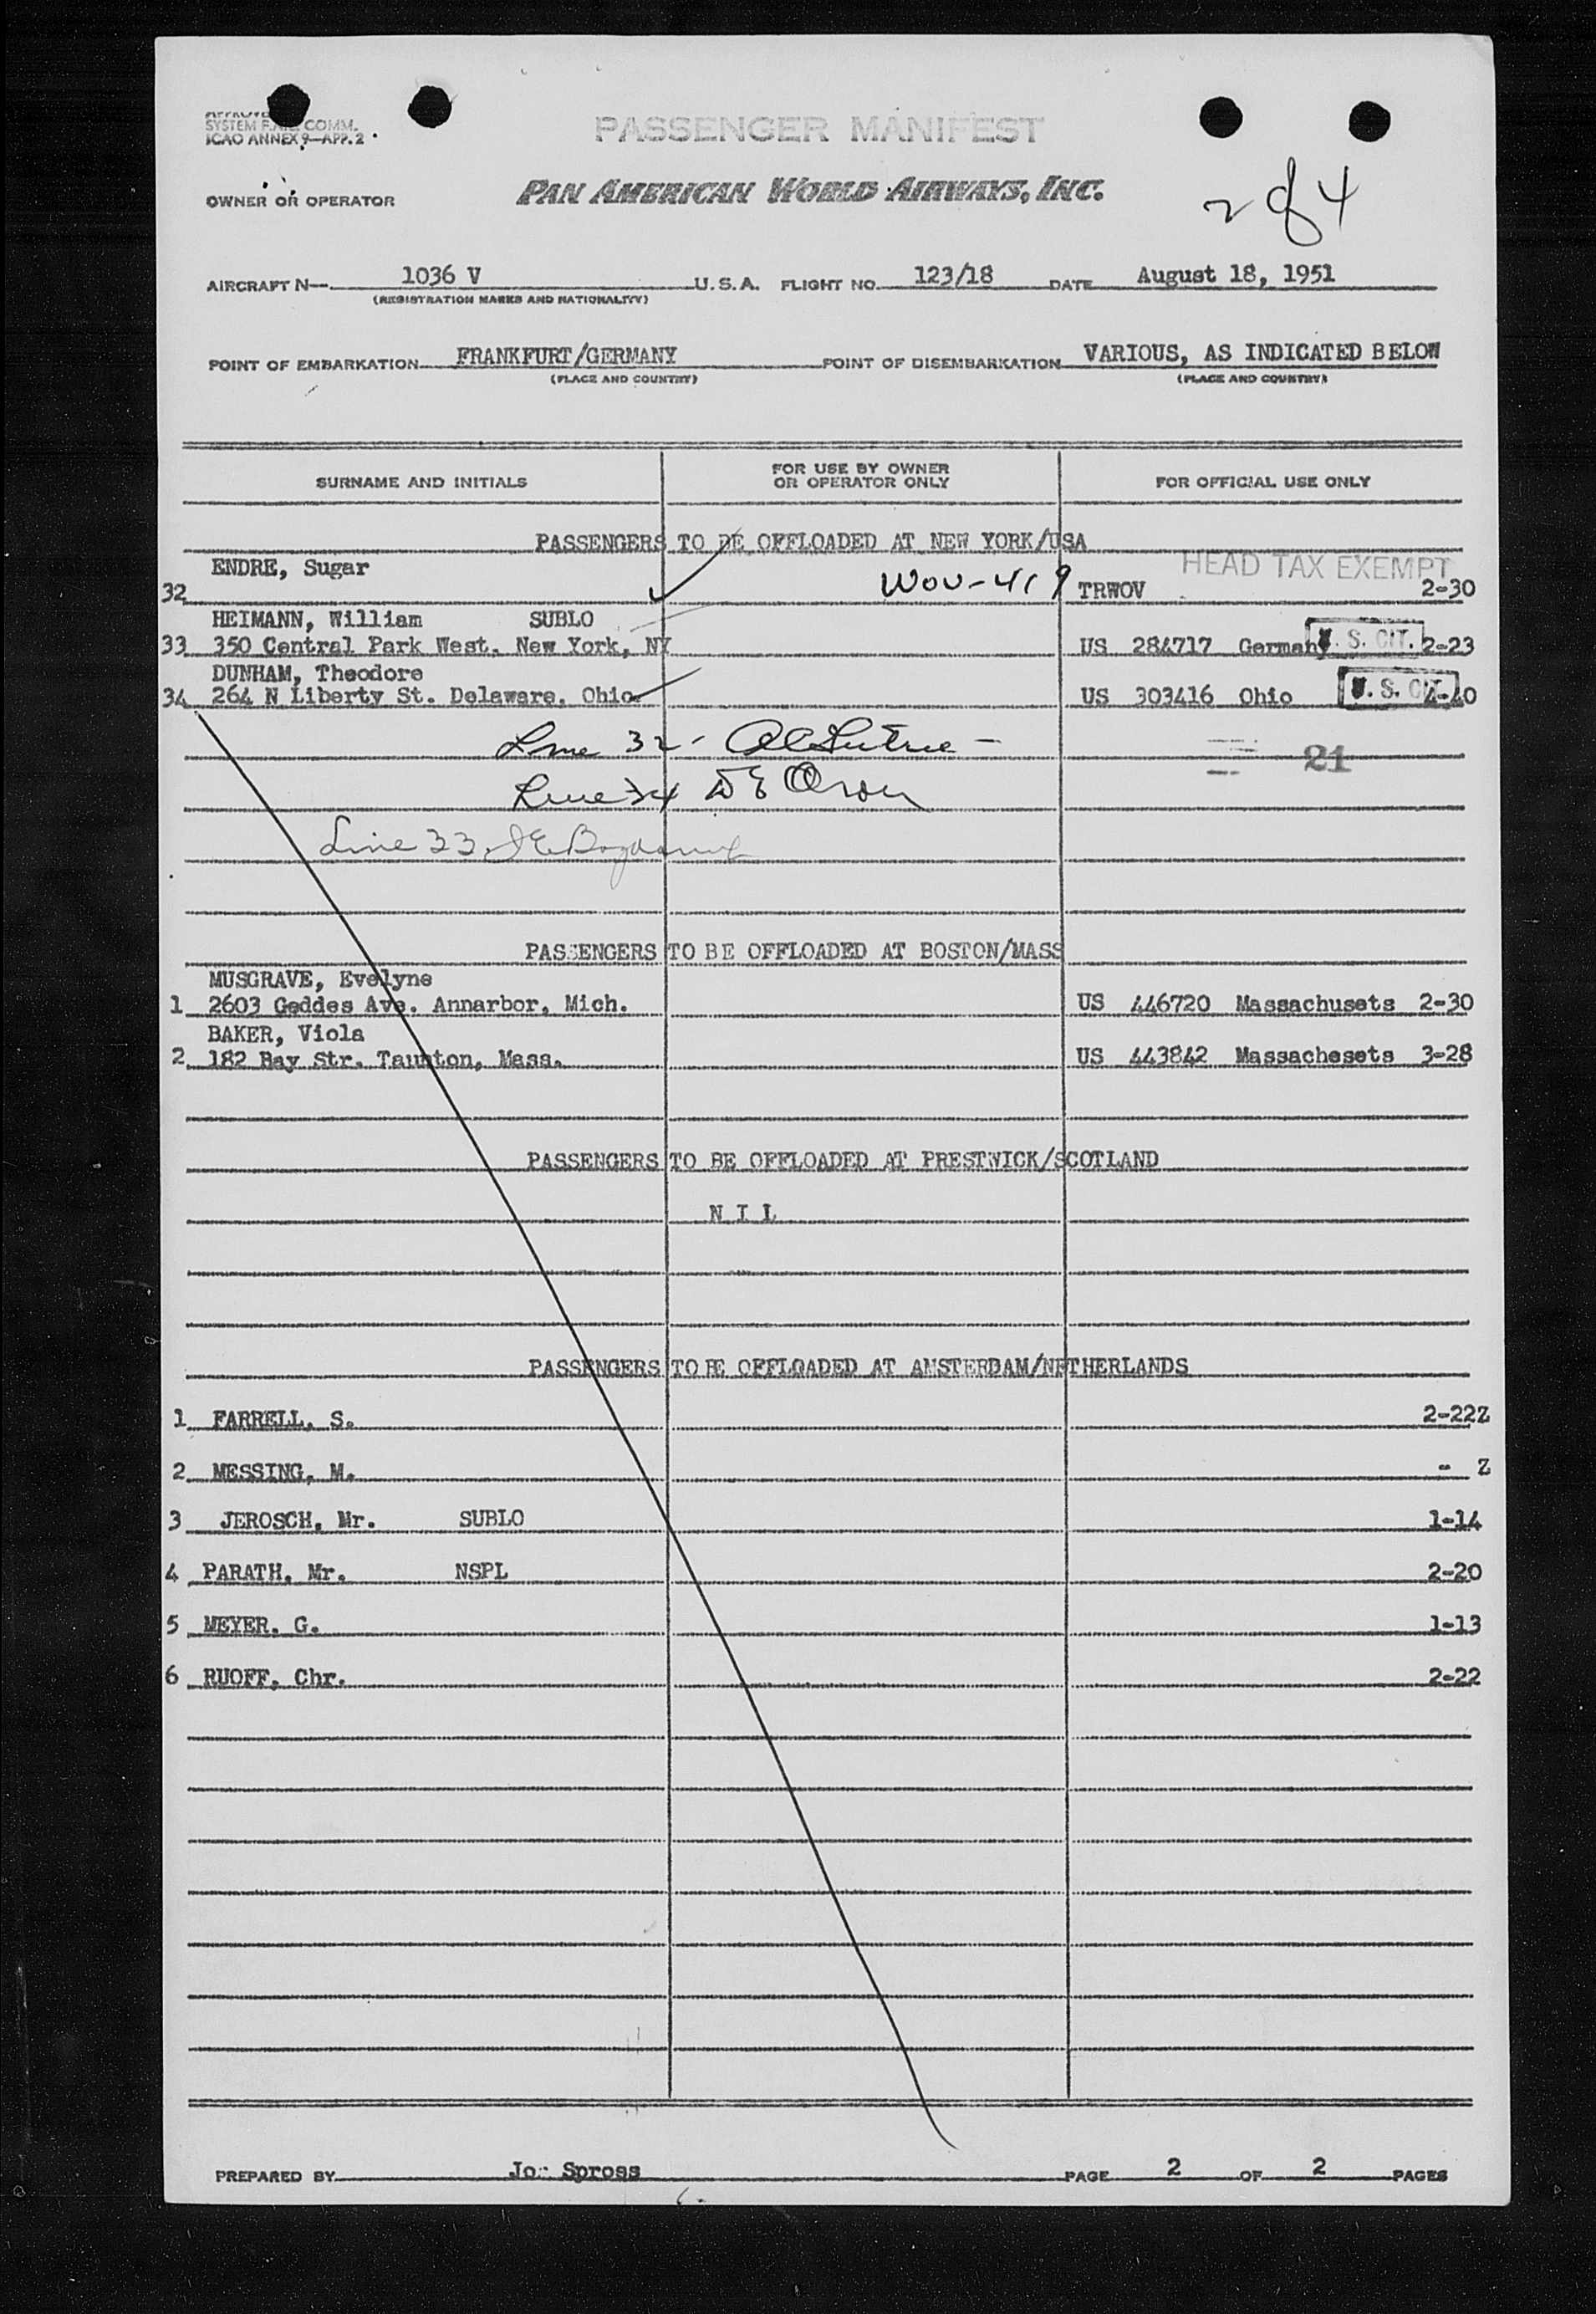 SYSTEM COMM.
ICAO ANNEX 9—APP. 2
PASSENGER MANIFEST
OWNER OR OPERATOR PAN AMERICAN WORLD AIRWAYS, INC.
2 of 4
AIRCRAFT N— 1036 V U.S.A. FLIGHT NO. 123/18 DATE August 18, 1951
(REGISTRATION MARKS AND NATIONALITY)
POINT OF EMBARKATION FRANKFURT/GERMANY POINT OF DISEMBARKATION VARIOUS, AS INDICATED BELOW
(PLACE AND COUNTRY) (PLACE AND COUNTRY)
SURNAME AND INITIALS FOR USE BY OWNER OR OPERATOR ONLY FOR OFFICIAL USE ONLY
PASSENGERS TO BE OFFLOADED AT NEW YORK/USA
ENDRE, Sugar HEAD TAX EXEMPT
32 WOV-419 TRWOV 2-30
HEIMANN, William SUBLO
33 350 Central Park West. New York, NY US 284717 Germany U. S. CIT. 2-23
DUNHAM, Theodore
34 264 N Liberty St. Delaware. Ohio US 303416 Ohio U. S. CIT. 4-40
Line 32 -
21
Line 34
Line 33
PASSENGERS TO BE OFFLOADED AT BOSTON/MASS
MUSGRAVE, Evelyne
1 2603 Geddes Ave. Annarbor, Mich. US 446720 Massachusets 2-30
BAKER, Viola
2 182 Bay Str. Taunton, Mass. US 443842 Massachesets 3-28
PASSENGERS TO BE OFFLOADED AT PRESTWICK/SCOTLAND
N I L
PASSENGERS TO BE OFFLOADED AT AMSTERDAM/NETHERLANDS
1 FARRELL, S. 2-22Z
2 MESSING, M. - Z
3 JEROSCH, Mr. SUBLO 1-14
4 PARATH, Mr. NSPL 2-20
5 MEYER, G. 1-13
6 RUOFF, Chr. 2-22
PREPARED BY Spross PAGE 2 OF 2 PAGES